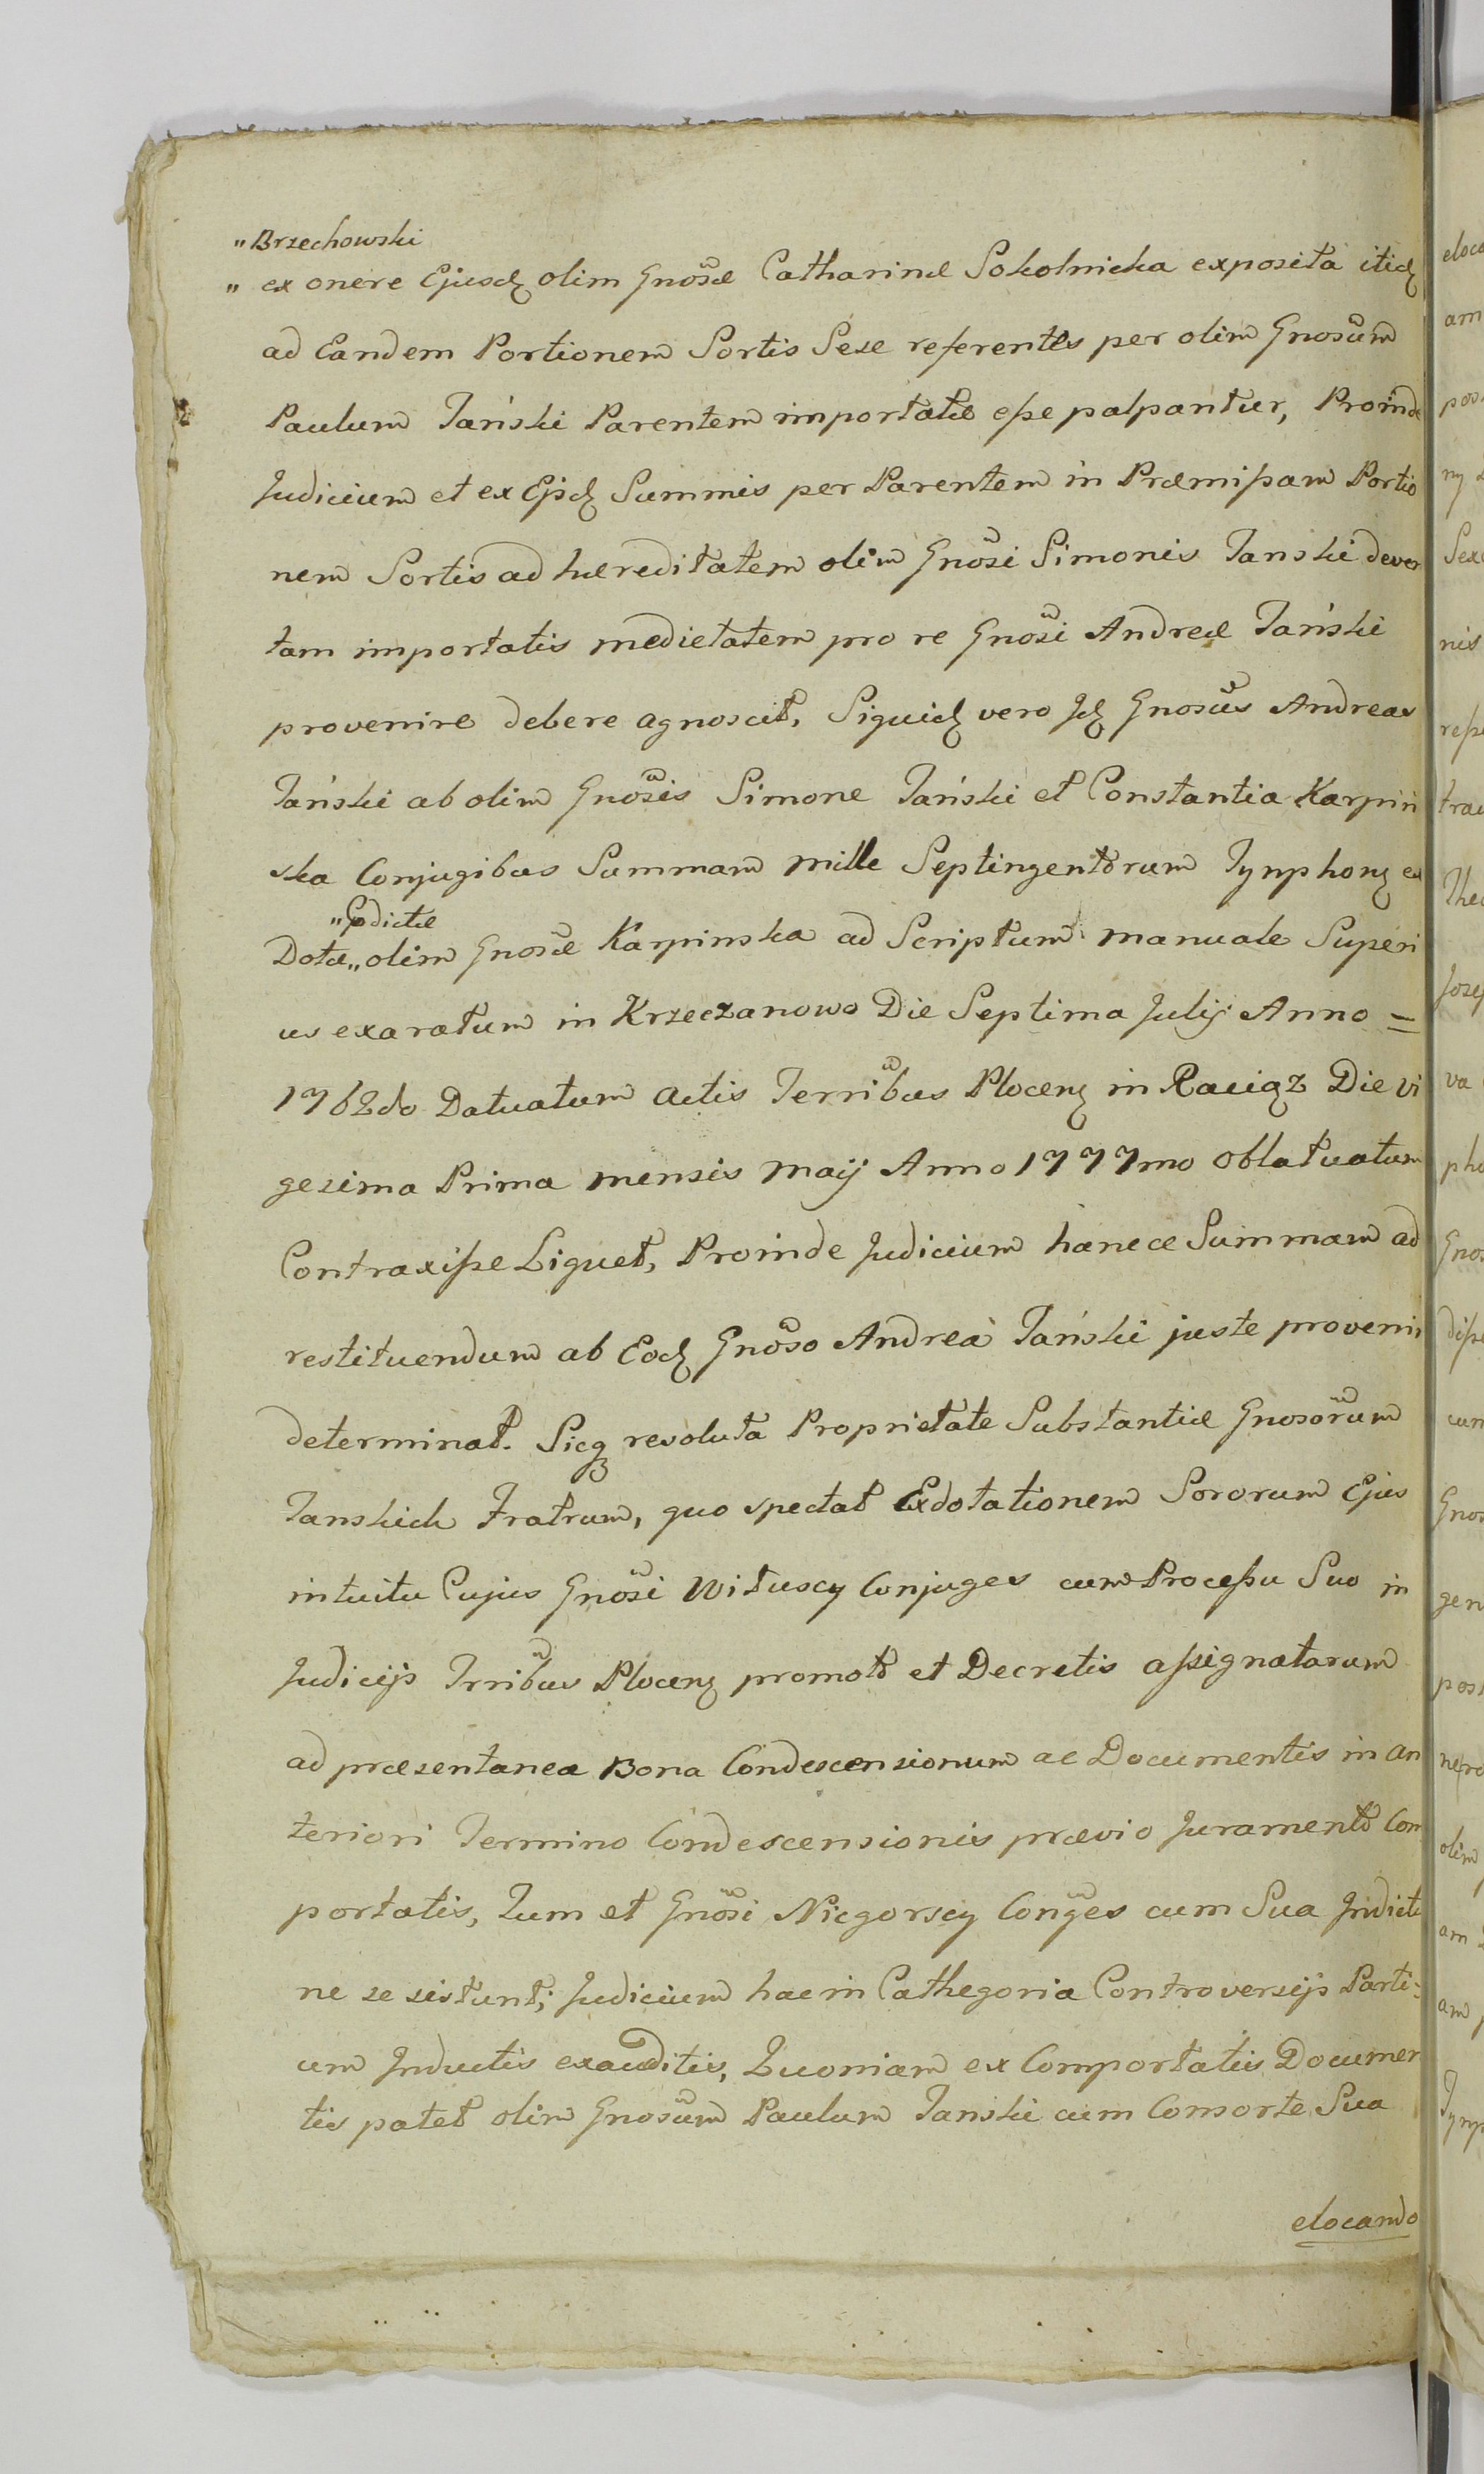 "Brzechowski
" ex onere Ejusd. olim Gnosæ Catharinæ Sokolnicka exposita itid.
ad Eandem Portionem Sortis Sese referentes per olim Gnosum
Paulum Tański Parentem importatæ esse palpantur, Proinde
Judicium et ex Ejsd. Summis per Parentem in Præmissam Portio
nem Sortis ad hæreditatem olim Gnosi Simonis Tanski devo
tam importatis medietatem pro re Gnosi Andreæ Tański
provenire debere agnoscit, Siquid. vero Jd. Gnosus Andreas
Tański ab olim Gnosis Simone Tański et Constantia Karpiń
ska Conjugibus Summam mille Septingentorum Tynphon. ex
"Pdictæ
Dotæ „ olim Gnosæ Karpinska ad Scriptum manuale Superi
us exaratum in Krzeczanowo Die Septima Julij Anno =
1762do Datuatum Actis Terribus Plocen. in Raciąz Die Vi
gesima Prima mensis Maij Anno 1777mo oblatuatum
Contraxisse Liquet, Proinde Judicium hancce Summam ad
restituendum ab Eod. Gnoso Andreà Tański juste proveni
determinat. Sicq. resoluta Proprietate Substantiæ Gnosorum
Tanskich Fratrum, quo spectat Exdotationem Sororum Ejus
intuitu Cujus Gnosi Wituscy Conjuges cum Processu Suo in
Judicijs Trribus Plocen. promoto et Decretis assignatarum
ad præsentanea Bona Condescensionum ac Documentis in an
teriori Termino Condescensionis prævio Juramento Com
portatis, Tum et Gnosi Niegorscy Conges cum Sua Jndictio
ne se sistunt; Judicium hac in Cathegoria Controversijs Parti-
um Jnductis exauditis, Quoniam ex Comportatis Documen
tis patet olim Gnosum Paulum Tanski cum Consorte Sua
elocando